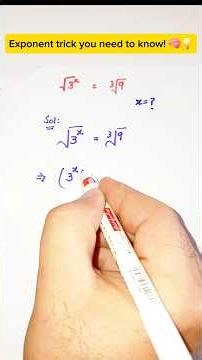 Exponent trick you need to know! 🧠💡
√3ˣ = ∛9
x=?
Sol:
√3ˣ = ∛9
⇒ (3ˣ